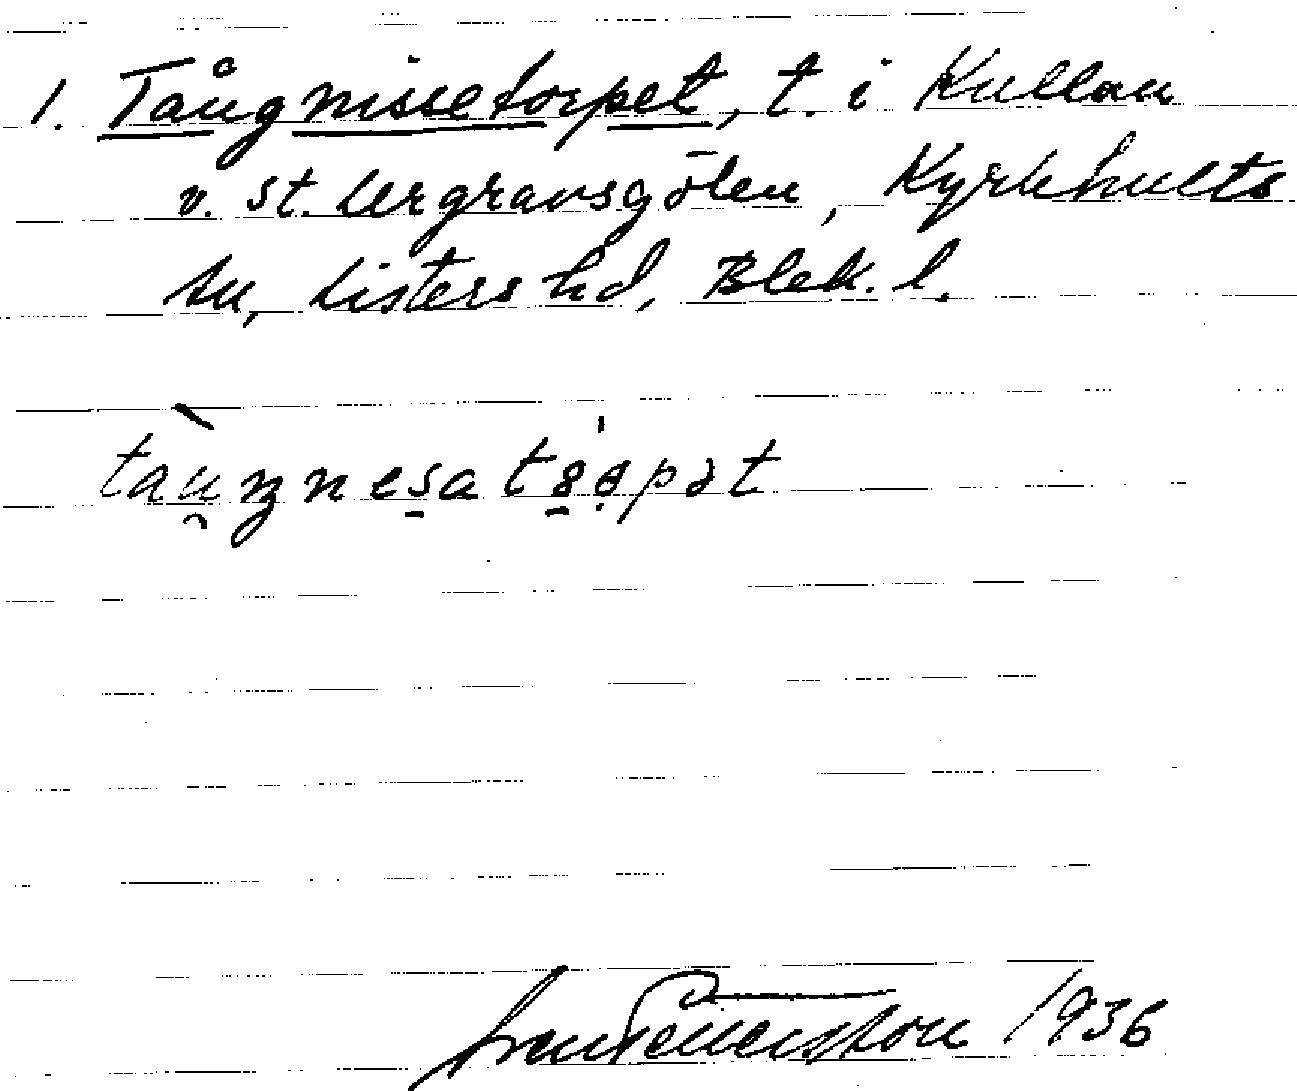 1. Tångnissetorpet, t. i Kullan
v. St. Lergravsgölen, Kyrkhults
sn, Listers hd, Blek. l.
1936